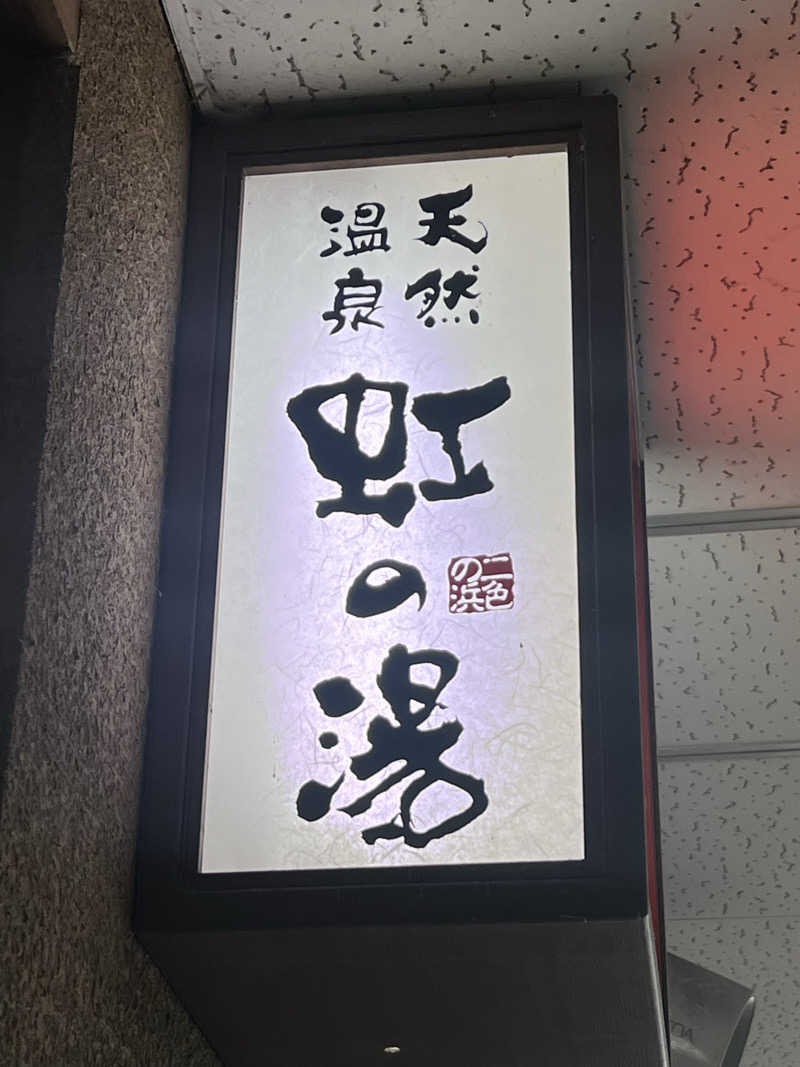 天然
温泉
虹の湯
二色
の浜